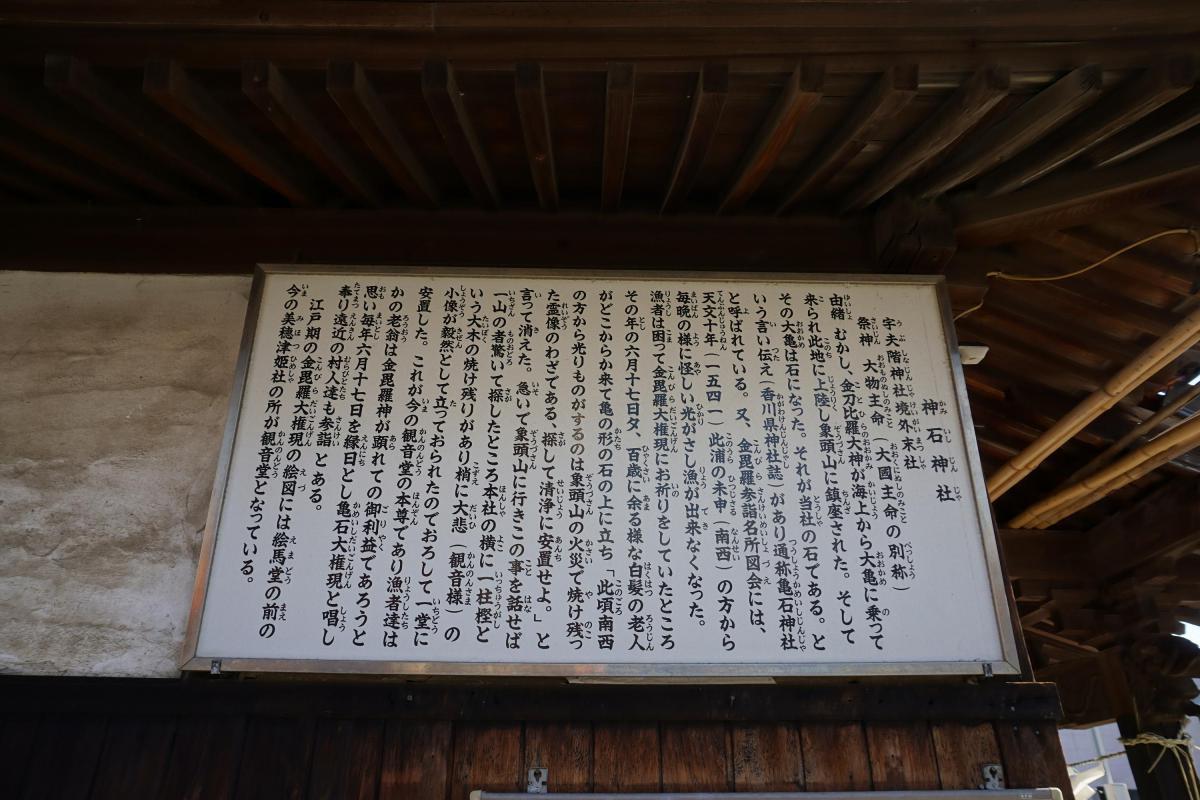 神石神社
宇夫階神社境外末社
祭神 大物主命（大國主命の別称）
由緒 むかし、金刀比羅大神が海上から大亀に乗って
来られ此地に上陸し象頭山に鎮座された。そして
その大亀は石になった。それが当社の石である。と
いう言い伝え（香川県神社誌）があり通称亀石神社
と呼ばれている。又、金毘羅参詣名所図会には、
天文十年（一五四一）此浦の未申（南西）の方から
毎晩の様に怪しい光がさし漁が出来なくなった。
漁者は困って金毘羅大権現にお祈りをしていたところ
その年の六月十七日夕、百歳に余る様な白髪の老人
がどこからか来て亀の形の石の上に立ち「此頃南西
の方から光りものがするのは象頭山の火災で焼け残っ
た霊像のわざである、探して清浄に安置せよ。」と
言って消えた。急いで象頭山に行きこの事を話せば
一山の者驚いて探したところ本社の横に一柱樫と
いう大木の焼け残りがあり梢に大悲（観音様）の
小像が毅然として立っておられたのでおろして一堂に
安置した。これが今の観音堂の本尊であり漁者達は
かの老翁は金毘羅神が顕れての御利益であろうと
思い毎年六月十七日を縁日とし亀石大権現と唱し
奉り遠近の村人達も参詣とある。
江戸期の金毘羅大権現の絵図には絵馬堂の前の
今の美穂津姫社の所が観音堂となっている。